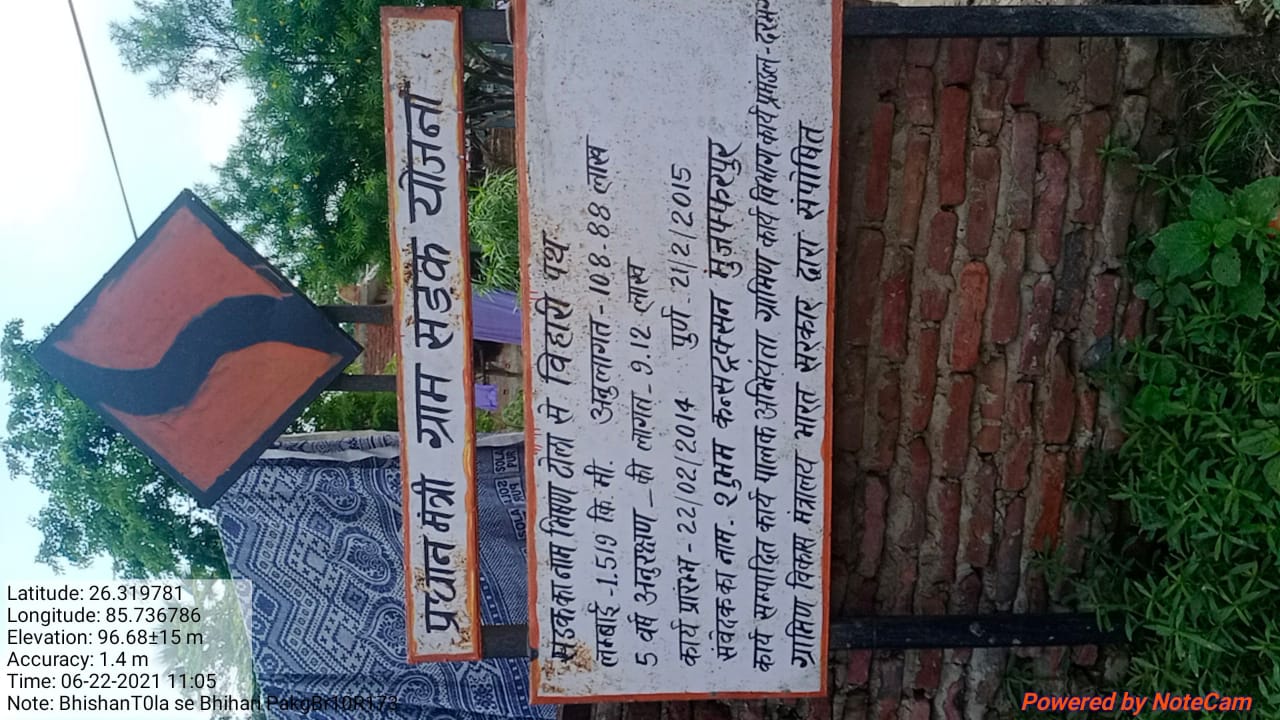 प्रधान मंत्री ग्राम सडक योजना
सडक का नाम भिषण टोला से विहारी पथ
लम्बाई - 1.519 कि.मी. अनुलागत - 108.88 लाख
5 वर्ष अनुरक्षण - की लागत - 9.12 लाख
कार्य प्रारम्भ - 22/02/2014 पुर्ण - 21/2/2015
संवेदक का नाम. शुभम कन्सट्रक्सन मुजफ्फरपुर
कार्य सम्पादित कार्य पालक अभियंता ग्रामिण कार्य विभाग कार्य प्रमंडल -
ग्रामिण विकास मंत्रालय भारत सरकार द्वारा संपोषित
Latitude: 26.319781
Longitude: 85.736786
Elevation: 96.68±15 m
Accuracy: 1.4 m
Time: 06-22-2021 11:05
Note: BhishanT0la se Bhihari PakgBr10R173
Powered by NoteCam